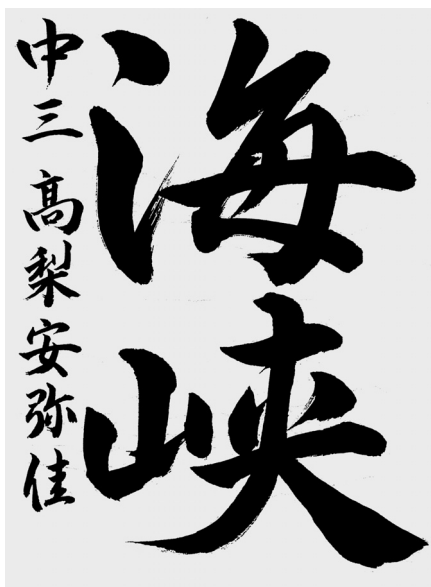 海峡
中三 高梨安弥佳